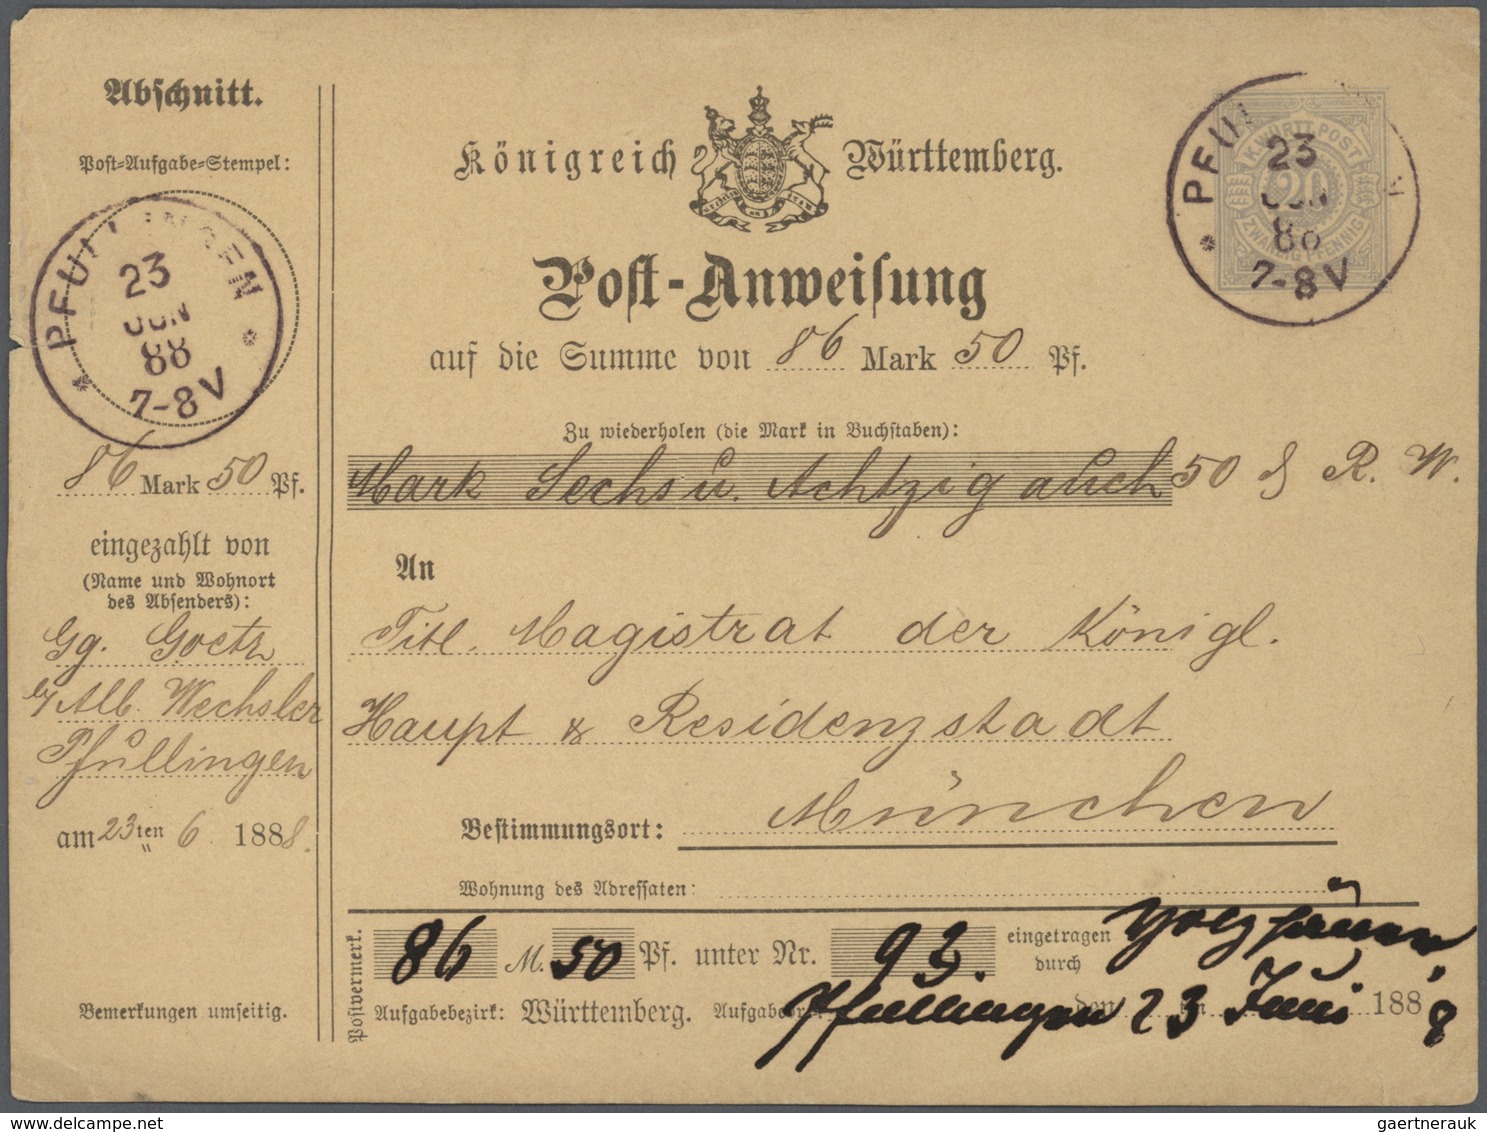 Abschnitt.
Post-Aufgabe-Stempel:
PFULLINGEN
23
JUN
88
7-8V
86 Mark 50 Pf.
eingezahlt von
(Name und Wohnort
des Absenders):
Gg. Goetz
b/ Alb. Wechsler
Pfullingen
am 23ten 6. 1888.
Bemerkungen umseitig.
Königreich Württemberg.
Post-Anweisung
auf die Summe von 86 Mark 50 Pf.
Zu wiederholen (die Mark in Buchstaben):
Mark Sechs u. Achtzig auch 50 ₰ R. W.
An
Titl. Magistrat der Königl.
Haupt & Residenzstadt
München
Bestimmungsort:
Wohnung des Adressaten:
Postvermerk.
86 M. 50 Pf. unter Nr. 93. eingetragen
durch
Aufgabebezirk: Württemberg. Pfullingen den 23 Juni 1888
K. WÜRTT. POST
20
ZWANZIG PFENNIG
PFUN
23
JUN
88
7-8V
gaertnerauk